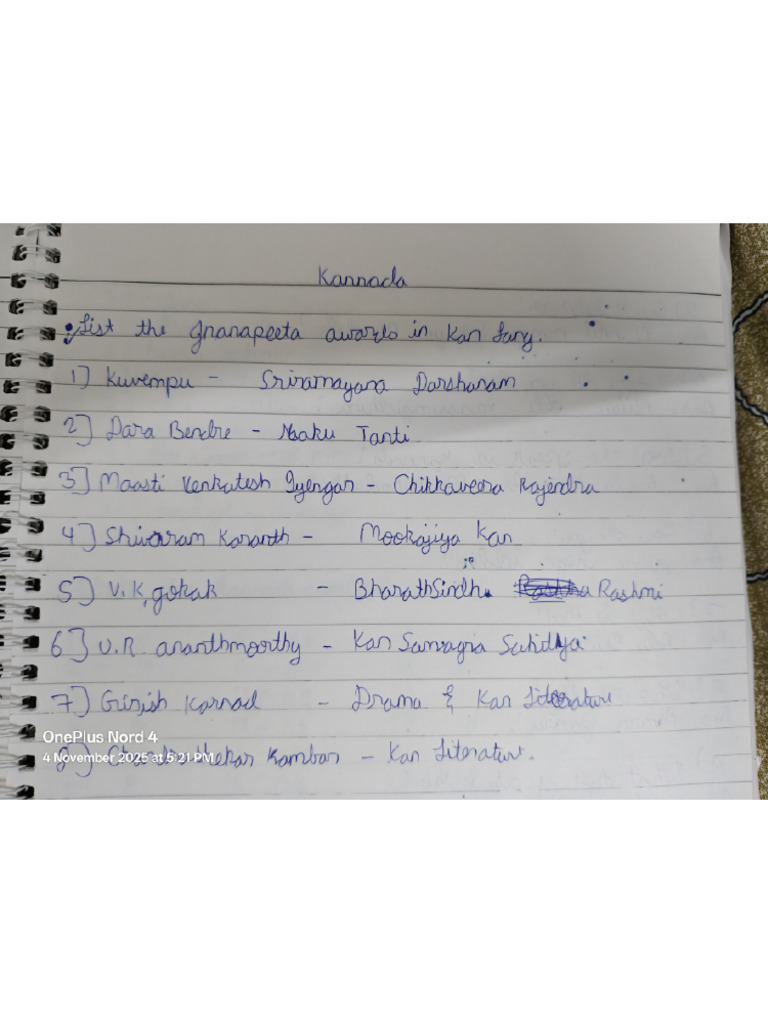 Kannada
List the Gnanapeeta awards in Kan Lang.
1] Kuvempu - Sriramayana Darshanam
2] Dara Bendre - Naaku Tanti.
3] Maasti Venkatesh Iyengar - Chikkaveera Rajendra
4] Shivaram Karanth - Mookajjiya Kan
5] V.K. gokak - BharathSindhu Rashmi
6] U.R ananthmoorthy - Kan Samagra Sahidya.
7] Girish Karnad - Drama & Kan Literature
8] Chandrashekar Kambar - Kan Literature.
OnePlus Nord 4
4 November 2025 at 5:21 PM